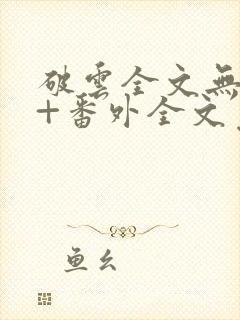 破雲全文無
+番外全文
鱼幺